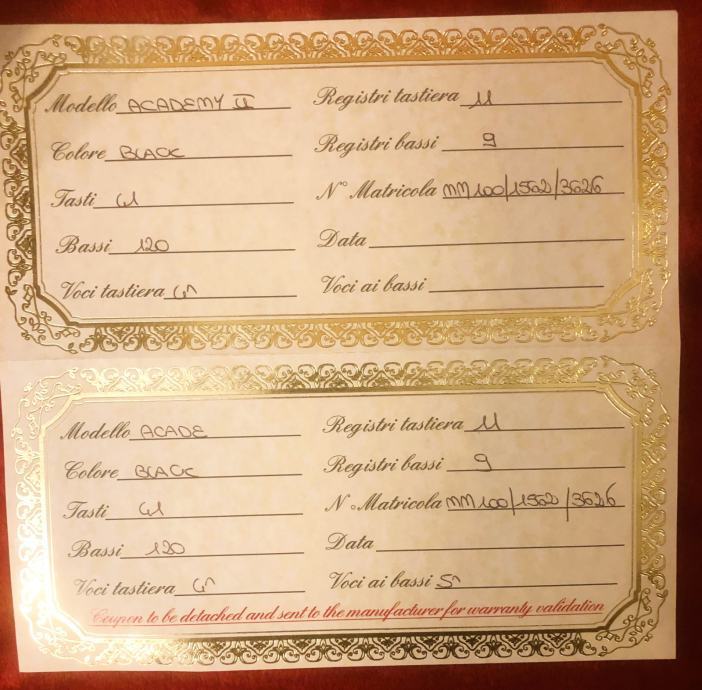 Modello ACADEMY II
Colore BLACK
Tasti 41
Bassi 120
Voci tastiera 4^
Registri tastiera 11
Registri bassi 9
N° Matricola MM100/1562/3626
Data
Voci ai bassi
Modello ACADE
Colore BLACK
Tasti 41
Bassi 120
Voci tastiera 4^
Registri tastiera 11
Registri bassi 9
N° Matricola MM100/1562/3626
Data
Voci ai bassi 5^
Coupon to be detached and sent to the manufacturer for warranty validation